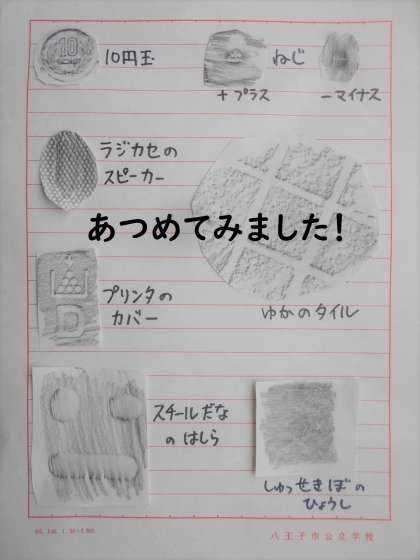 10円玉
ねじ
+プラス
-マイナス
ラジカセの
スピーカー
あつめてみました!
ゆかのタイル
プリンタの
カバー
スチールだな
のはしら
しゅっせきぼの
ひょうし
八王子市公立学校